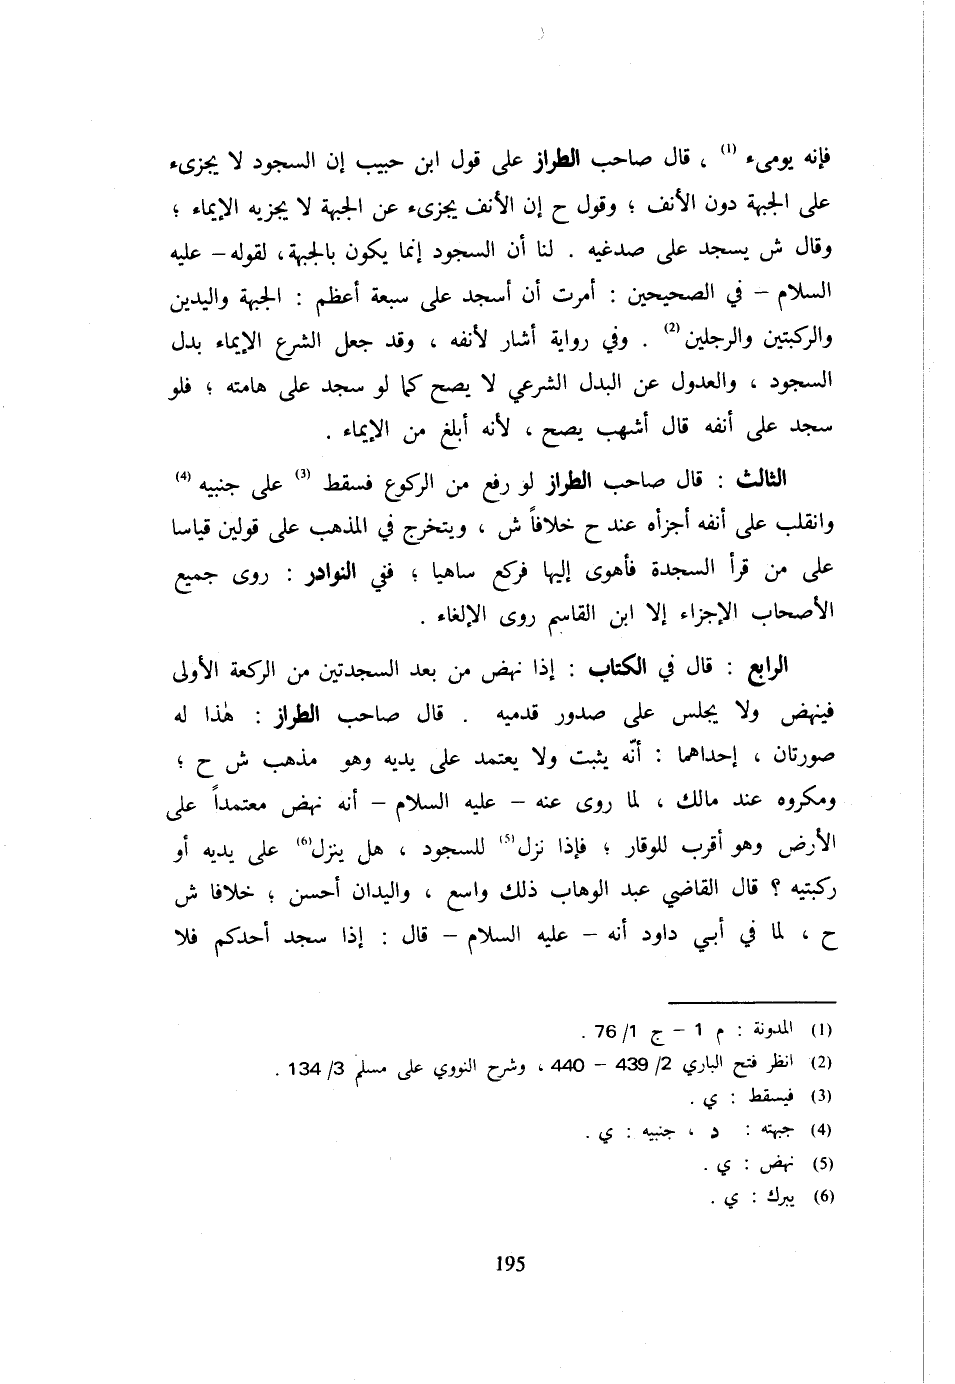 فإنه يومىء (1) ، قال صاحب الطراز على قول ابن حبيب إن السجود لا يجزىء
على الجبهة دون الأنف ؛ وقول ح إن الأنف يجزىء عن الجبهة لا يجزيه الإيماء ؛
وقال ش يسجد على صدغيه . لنا أن السجود إنما يكون بالجبهة، لقوله – عليه
السلام – في الصحيحين : أمرت أن أسجد على سبعة أعظم : الجبهة واليدين
والركبتين والرجلين (2) . وفي رواية أشار لأنفه ، وقد جعل الشرع الإيماء بدل
السجود ، والعدول عن البدل الشرعي لا يصح كما لو سجد على هامته ؛ فلو
سجد على أنفه قال أشهب يصح ، لأنه أبلغ من الإيماء .
الثالث : قال صاحب الطراز لو رفع من الركوع فسقط (3) على جنبيه (4)
وانقلب على أنفه أجزأه عند ح خلافاً ش ، ويتخرج في المذهب على قولين قياسا
على من قرأ السجدة فأهوى إليها فركع ساهيا ؛ ففي النوادر : روى جميع
الأصحاب الإجزاء إلا ابن القاسم روى الإلغاء .
الرابع : قال في الكتاب : إذا نهض من بعد السجدتين من الركعة الأولى
فينهض ولا يجلس على صدور قدميه . قال صاحب الطراز : هٰذا له
صورتان ، إحداهما : أنّه يثبت ولا يعتمد على يديه وهو مذهب ش ح ؛
ومكروه عند مالك ، لما روى عنه – عليه السلام – أنه نهض معتمداً على
الأرض وهو أقرب للوقار ؛ فإذا نزل(5) للسجود ، هل ينزل(6) على يديه أو
ركبتيه ؟ قال القاضي عبد الوهاب ذلك واسع ، واليدان أحسن ؛ خلافا ش
ح ، لما في أبي داود أنه – عليه السلام – قال : إذا سجد أحدكم فلا
(1) المدونة : م 1 – ج 1/ 76 .
(2) انظر فتح الباري 2/ 439 – 440 ، وشرح النووي على مسلم 3/ 134 .
(3) فيسقط : ي .
(4) جبهته : د ، جنبيه : ي .
(5) نهض : ي .
(6) يبرك : ي .
195